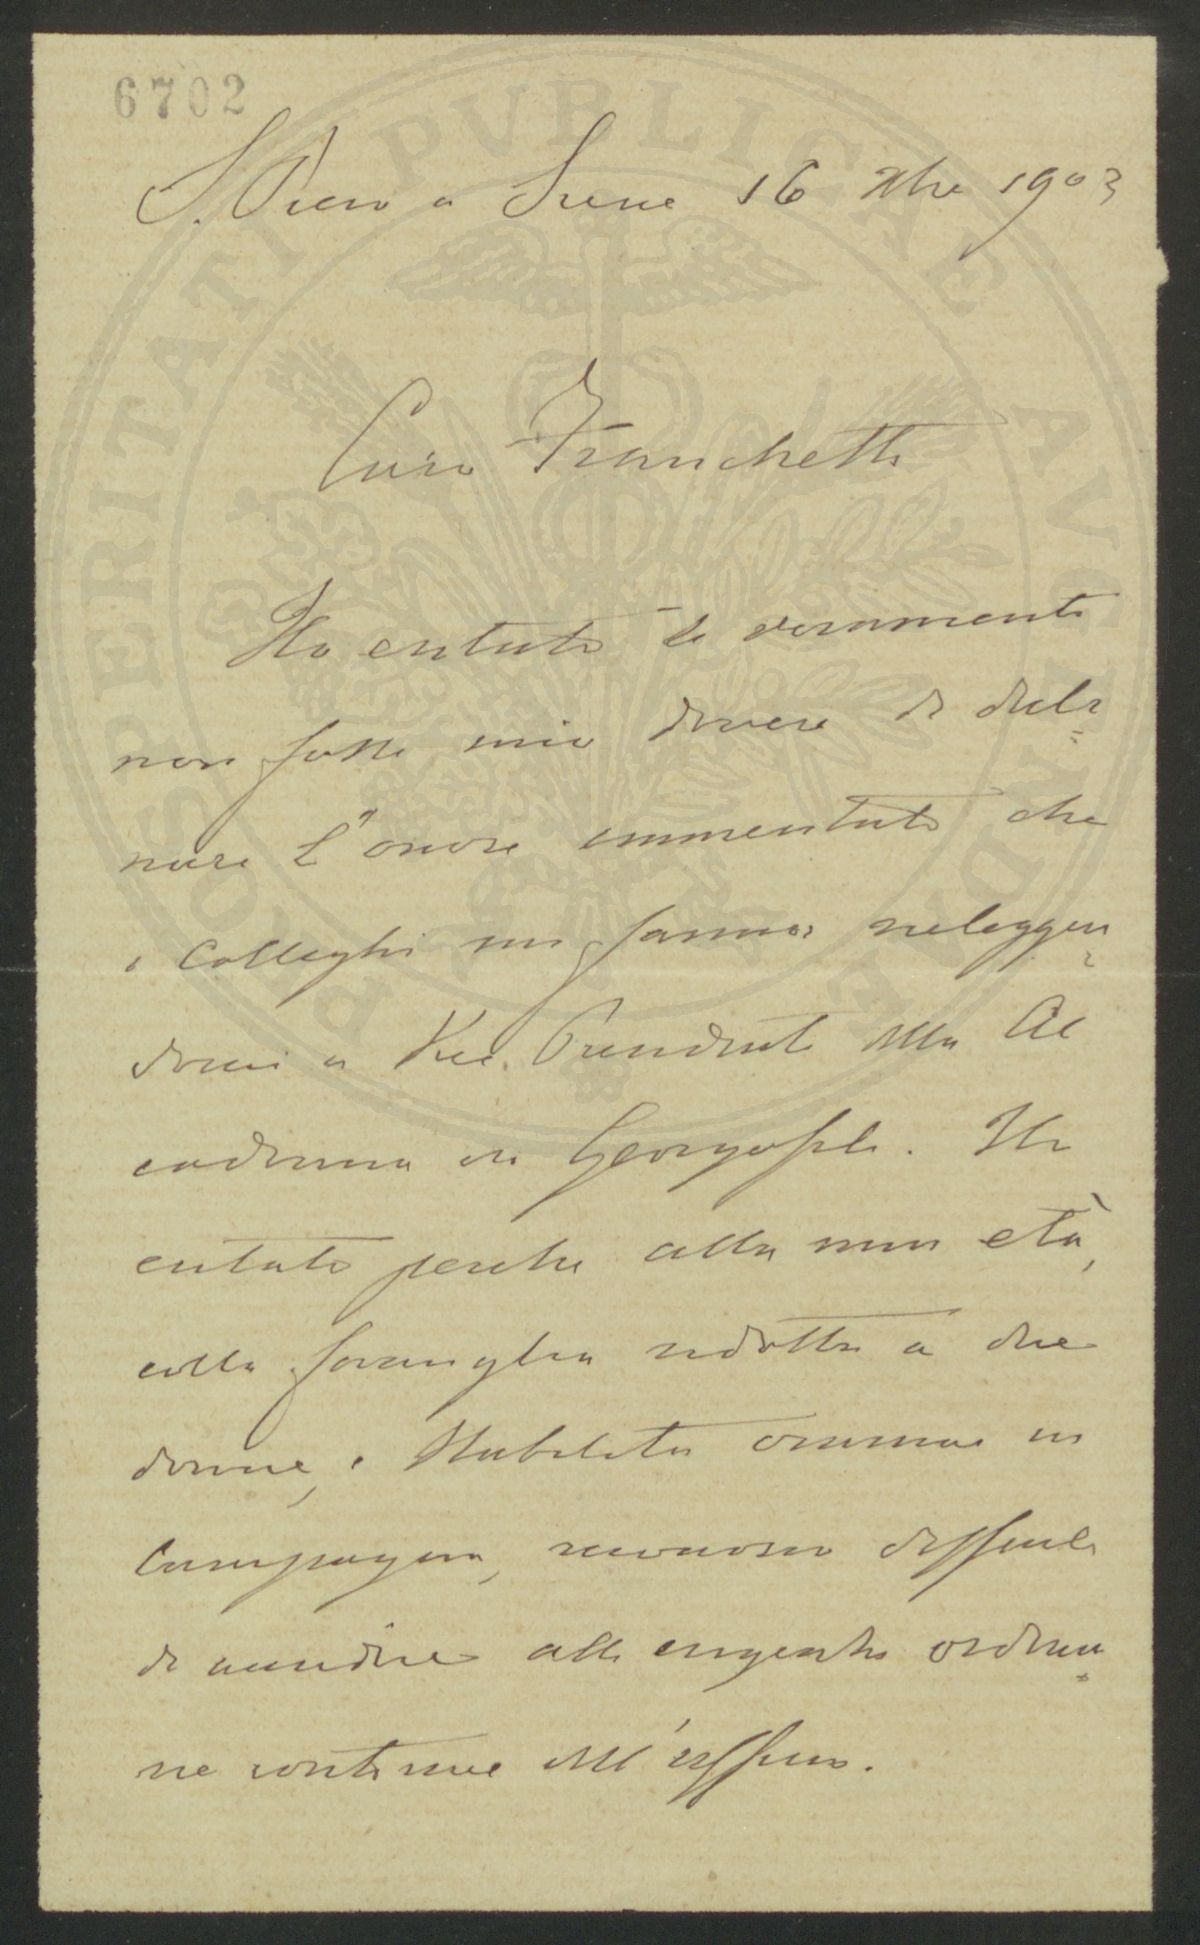 6702
S. Piero a Sieve 16 Xbre 1903
Caro Franchetti
Ho esitato se veramente
non fosse mio dovere di decli=
nare l'onore immeritato che
i Colleghi mi fanno rieleggen=
domi a Vice Presidente della Ac
cademia dei Georgofili. Ho
esitato perchè alla mia età,
colla famiglia ridotta a due
donne, e stabilita ormai in
Campagna, riconosco difficile
di accudire alle esigenze ordina=
rie continue dell'ufficio.
PROSPERITATI PVBLICAE AVGENDAE